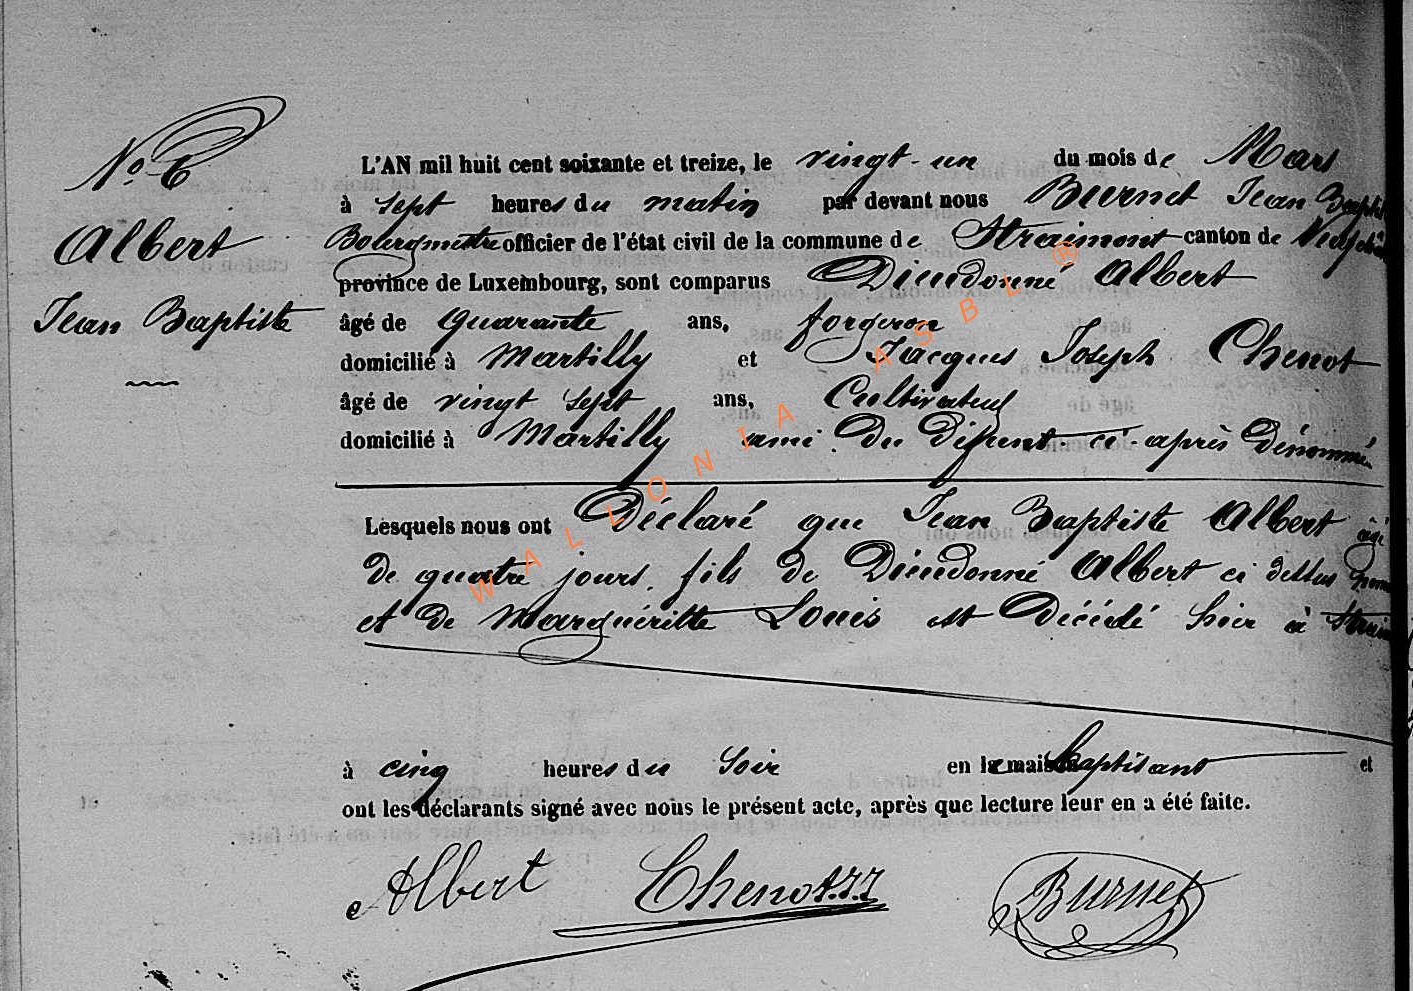 No 6
Albert
Jean Baptiste
L'AN mil huit cent soixante et treize, le vingt-un du mois de Mars
à sept heures du matin par devant nous Burnet Jean Baptis
Bourgmestre officier de l'état civil de la commune de Straimont canton de
province de Luxembourg, sont comparus Dieudonné Albert
âgé de quarante ans, forgeron
domicilié à Martilly et Jacques Joseph Chenot
âgé de vingt sept ans, Cultivateur
domicilié à Martilly ami du défunt ci-après dénommé
Lesquels nous ont Déclaré que Jean Baptiste Albert âgé
de quatre jours, fils de Dieudonné Albert ci dessus
et de Marguéritte Louis est décédé hier à
à cinq heures du soir en la maison et
ont les déclarants signé avec nous le présent acte, après que lecture leur en a été faite.
Albert Chenot.J.J Burnet
WALLONIA ASBL ®